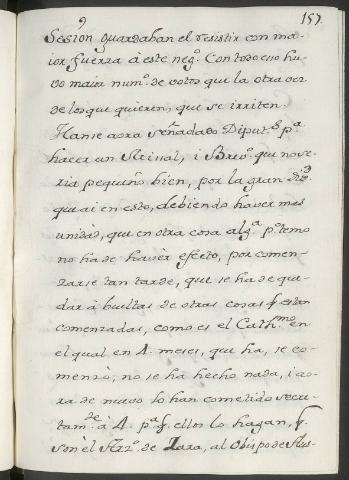 9
157.
Sesion guardaban el resistir con ma-
ior fuerza à este neg.º Con todo eso hu-
vo maior num.º de votos que la otra vez
de los que quieren, que se irriten.
Hanse aora señalado Diput.s p.a
hacer un Missal, i Brev.º que no se-
ria pequeño bien, por la gran
que ai en esto, debiendo haver mas
unidad, que en otra cosa alg.a p.º temo
no ha de haver efecto, por comen-
zarse tan tarde, que se ha de que-
dar à bueltas de otras cosas q estan
comenzadas, como es el Cath.mo en
el qual en 4. meses, que ha, se co-
menzò, no se ha hecho nada, i ao-
ra de nuevo lo han cometido secre-
tam.te à 4. p.a q ellos lo hagan, q.
son èl Arz.º de Zara, al Obispo de Aus-